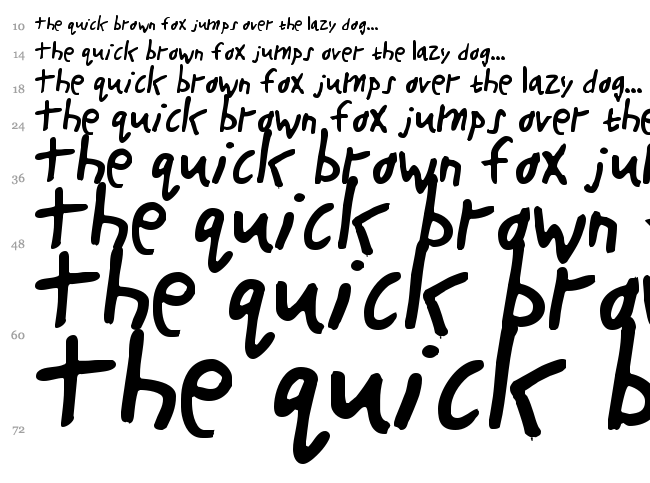 10 the quick brown fox jumps over the lazy dog...
14 the quick brown fox jumps over the lazy dog...
18 the quick brown fox jumps over the lazy dog...
24 the quick brown fox jumps over the
36 the quick brown fox jum
48 the quick brown
60 the quick bra
72 the quick b